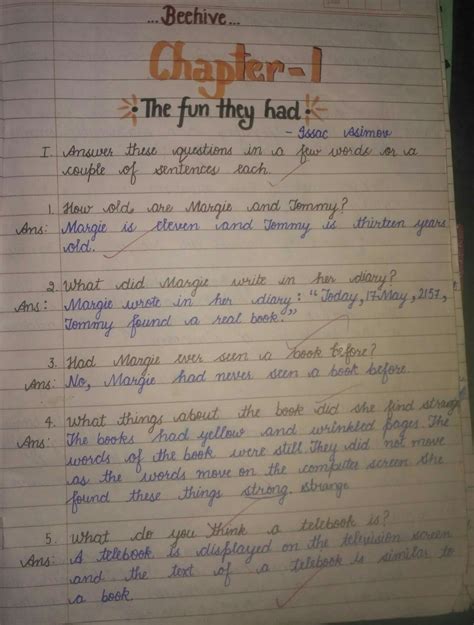 ... Beehive ...
Chapter-1
The fun they had
- Issac Asimov
I. Answer these questions in a few words or a
couple of sentences each.
1. How old are Margie and Tommy?
Ans: Margie is eleven and Tommy is thirteen years
old.
2. What did Margie write in her diary?
Ans: Margie wrote in her diary: "Today, 17 May, 2157,
Tommy found a real book."
3. Had Margie ever seen a book before?
Ans: No, Margie had never seen a book before.
4. What things about the book did she find strange
Ans: The books had yellow and wrinkled pages. The
words of the book were still. They did not move
as the words move on the computer screen. She
found these things strong. strange
5. What do you think a telebook is?
Ans: A telebook is displayed on the television screen
and the text of a telebook is similar to
a book.